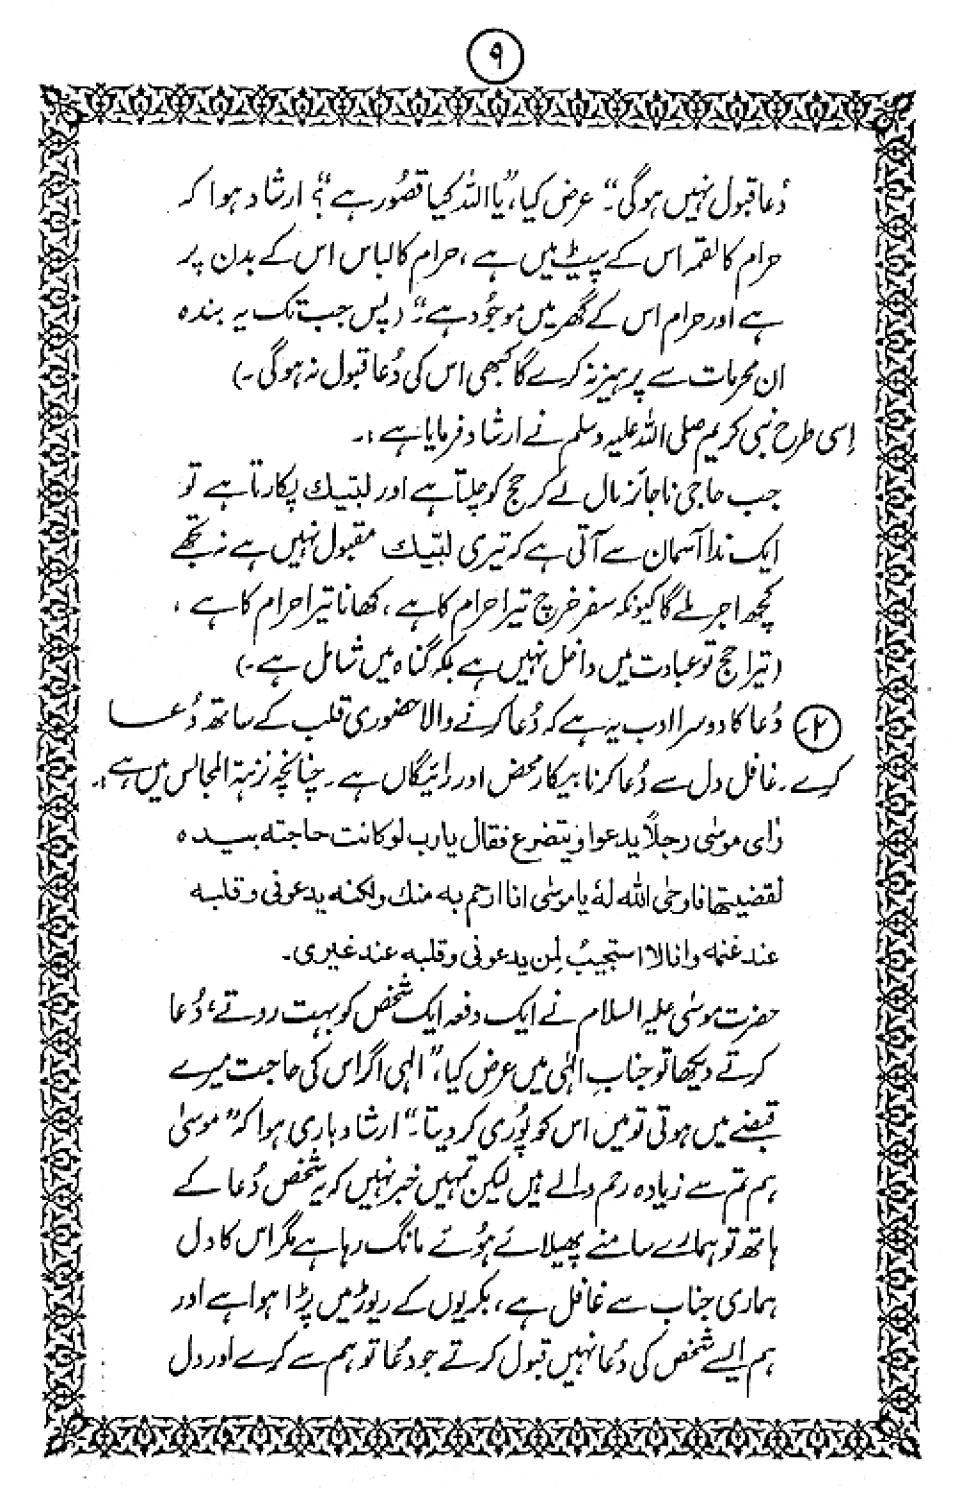 ۹
دُعا قبول نہیں ہوگی۔“ عرض کیا، ”یا اللہ کیا قصُور ہے“؟ ارشاد ہوا کہ
حرام کا لقمہ اس کے پیٹ میں ہے، حرام کا لباس اس کے بدن پر
ہے اور حرام اس کے گھر میں موجُود ہے۔“ (پس جب تک یہ بندہ
ان محرمات سے پرہیز نہ کرے گا کبھی اس کی دُعا قبول نہ ہوگی۔)
اِسی طرح نبی کریم صلی اللہ علیہ وسلم نے ارشاد فرمایا ہے:۔
جب حاجی ناجائز مال لے کر حج کو چلتا ہے اور لبّیك پکارتا ہے تو
ایک ندا آسمان سے آتی ہے کہ تیری لبّیك مقبول نہیں ہے نہ تجھے
کچھ اجر ملے گا کیونکہ سفر خرچ تیرا حرام کا ہے، کھانا تیرا حرام کا ہے،
(تیرا حج تو عبادت میں داخل نہیں ہے بلکہ گناہ میں شامل ہے۔)
۲۔ دُعا کا دوسرا ادب یہ ہے کہ دُعا کرنے والا حضوری قلب کے ساتھ دُعا
کرے۔ غافل دل سے دُعا کرنا بیکار محض اور رائیگاں ہے۔ چنانچہ نزہۃ المجالس میں ہے:۔
رٰای موسٰی رجلاً یدعوا ویتضرع فقال یارب لوکانت حاجته بیده
لقضیتها فاوحٰی اللّٰه لهٗ یاموسٰی انا ارحم به منك ولکنه یدعونی وقلبه
عند غنمه وانا لا استجیبُ لِمن یدعونی وقلبه عند غیری۔
حضرت موسٰی علیہ السلام نے ایک دفعہ ایک شخص کو بہت روتے، دُعا
کرتے دیکھا تو جنابِ الٰہی میں عرض کیا، ”الٰہی اگر اس کی حاجت میرے
قبضے میں ہوتی تو میں اس کو پُوری کر دیتا۔“ ارشاد باری ہوا کہ ”موسٰی
ہم تم سے زیادہ رحم والے ہیں لیکن تمہیں خبر نہیں کہ یہ شخص دُعا کے
ہاتھ تو ہمارے سامنے پھیلائے ہُوئے مانگ رہا ہے مگر اس کا دل
ہماری جناب سے غافل ہے، بکریوں کے ریوڑ میں پڑا ہوا ہے اور
ہم ایسے شخص کی دُعا نہیں قبول کرتے جو دُعا تو ہم سے کرے اور دل